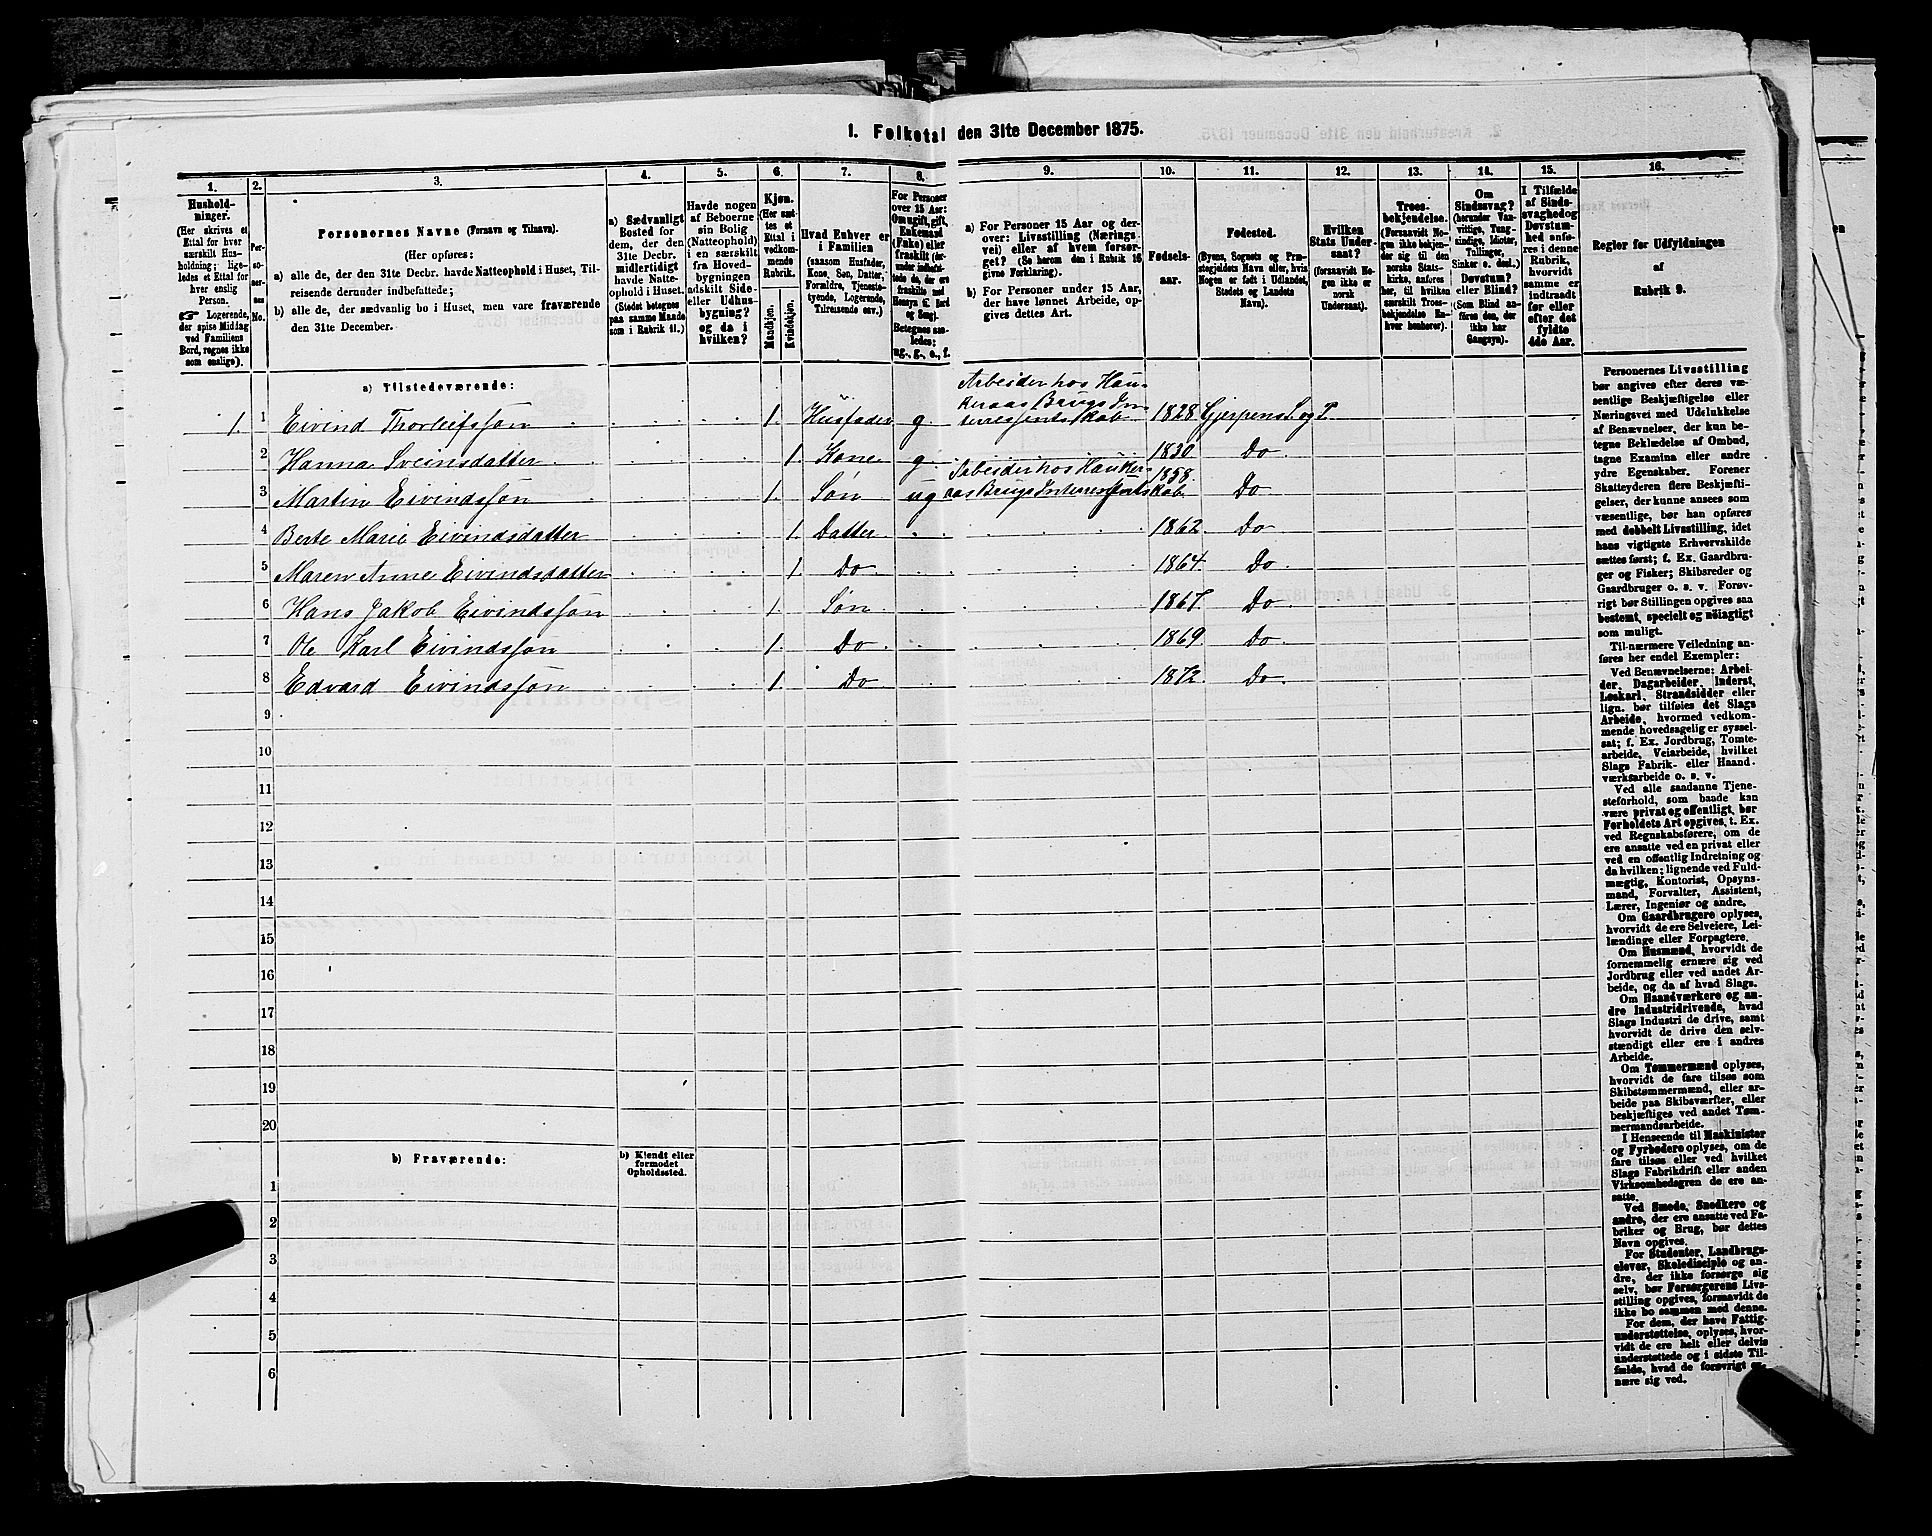 1. Folketal den 31te December 1875.
1. 2. 3. 4. 5. 6. 7. 8. 9. 10. 11. 12. 13. 14. 15. 16.
Hushold-
ninger.
(Her skrives et
Ettal for hver
særskilt Hus-
holdning; lige-
ledes et Ettal for
hver enslig
Person.
☞ Logerende,
der spise Middag
ved Familiens
Bord, regnes ikke
som enslige).
Per-
so-
ner-
nes
No.
Personernes Navne (Fornavn og Tilnavn).
(Her opføres:
a) alle de, der den 31te Decbr. havde Natteophold i Huset, Til-
reisende derunder indbefattede;
b) alle de, der sædvanlig bo i Huset, men vare fraværende
den 31te December.
a) Sædvanligt
Bosted for
dem, der den
31te Decbr.
midlertidigt
havde Natte-
ophold i Huset.
(Stedet betegnes
paa samme Maade
som i Rubrik 11.)
Havde nogen
af Beboerne
sin Bolig
(Natteophold)
i en særskilt
fra Hoved-
bygningen
adskilt Side-
eller Udhus-
bygning?
og da i
hvilken?
Kjøn.
(Her sæt-
tes et
Ettal i
vedkom-
mende
Rubrik.
Mandkjøn.
Kvindekjøn.
Hvad Enhver er
i Familien
(saasom Husfader,
Kone, Søn, Datter,
Forældre, Tjeneste-
tyende, Logerende,
Tilreisende osv.)
For Personer
over 15 Aar:
Om ugift, gift,
Enkemand
(Enke) eller
fraskilt (der-
under indbefat-
tede de, der ere
fraskilte med
Hensyn til Bord
og Seng).
Betegnes saa-
ledes:
ug., g., e., f.
a) For Personer 15 Aar og der-
over: Livsstilling (Nærings-
vei) eller af hvem forsør-
get? (Se herom den i Rubrik 16
givne Forklaring).
b) For Personer under 15 Aar,
der have lønnet Arbeide, op-
gives dettes Art.
Fødsels-
aar.
Fødested.
(Byens, Sognets og Præ-
stegjeldets Navn eller, hvis
Nogen er født i Udlandet,
Stedets og Landets
Navn).
Hvilken
Stats Under-
saat?
(forsaavidt No-
gen ikke er
norsk
Undersaat).
Troes-
bekjendelse.
(Forsaavidt No-
gen ikke bekjen-
der sig til den
norske Stats-
kirke, anføres
her, til hvilken
særskilt Troes-
bekjendelse En-
hver henhører).
Om
Sindssvag?
(herunder Van-
vittige, Tung-
sindige, Idioter,
Tullinger,
Sinker o. desl.)
Døvstum?
eller Blind?
(Som Blind an-
føres den, der
ikke har
Gangsyn).
I Tilfælde
af Sinds-
svaghed og
Døvstum-
hed anfø-
res i denne
Rubrik,
hvorvidt
samme er
indtraadt
før eller
efter det
fyldte
4de Aar.
Regler for Udfyldningen
af
Rubrik 9.
a) Tilstedeværende:
1. 1 Eivind Thorleifssøn 1. Husfader g. Arbeider hos Hau-
keraas Brugs In-
teressentskab 1828 Gjerpens S. og P.
2 Hanna Sveinsdatter 1. Kone g. 1830 Do
3 Martin Eivindssøn 1. Søn ug Arbeider hos Hauker-
aas Brugs Interessentskab 1858. Do
4 Berte Marie Eivindsdatter 1. Datter 1862. Do
5 Maren Anne Eivindsdatter 1. Do 1864. Do
6 Hans Jakob Eivindssøn 1. Søn 1867. Do
7 Ole Karl Eivindssøn 1. Do 1869 Do
8 Edvard Eivindssøn 1. Do 1872. Do.
9
10
11
12
13
14
15
16
17
18
19
20
b) Fraværende:
b) Kjendt eller
formodet
Opholdssted.
1
2
3
4
5
6
Personernes Livsstilling
bør angives efter deres væ-
sentlige Beskjæftigelse eller
Næringsvei med Udelukkelse
af Benævnelser, der kun be-
tegne Beklædelse af Ombud,
tagne Examina eller andre
ydre Egenskaber. Forener
Skatteyderen flere Beskjæfti-
gelser, der kunne ansees som
væsentlige, bør han opføres
med dobbelt Livsstilling, idet
hans vigtigste Erhvervskilde
sættes først; f. Ex. Gaardbru-
ger og Fisker; Skibsreder og
Gaardbruger o. s. v. Forøv-
rigt bør Stillingen opgives saa
bestemt, specielt og nøiagtigt
som muligt.
Til nærmere Veiledning an-
føres her endel Exempler:
Ved Benævnelserne: Arbei-
der, Dagarbeider, Inderst,
Løskarl, Strandsidder eller
lign. bør tilføies det Slags
Arbeide, hvormed vedkom-
mende hovedsagelig er syssel-
sat; f. Ex. Jordbrug, Tomte-
arbeide, Veiarbeide, hvilket
Slags Fabrik- eller Haand-
værksarbeide o. s. v.
Ved alle saadanne Tjene-
steforhold, som baade kan
være privat og offentligt, bør
Forholdets Art opgives, t. Ex.
ved Regnskabsførere, om de
ere ansatte ved en privat eller
ved en offentlig Indretning og
da hvilken; lignende ved Fuld-
mægtig, Kontorist, Opsyns-
mand, Forvalter, Assistent,
Lærer, Ingeniør og andre.
Om Gaardbrugere oplyses,
hvorvidt de ere Selveiere, Lei-
lændinge eller Forpagtere.
Om Husmænd, hvorvidt de
fornemmelig ernære sig ved
Jordbrug eller ved andet Ar-
beide, og da af hvad Slags.
Om Haandværkere og an-
dre Industridrivende, hvad
Slags Industri de drive, samt
hvorvidt de drive den selv-
stændigt eller ere i andres
Arbeide.
Om Tømmermænd oplyses,
hvorvidt de fare tilsøs som
Skibstømmermænd, eller ar-
beide paa Skibsværfter, eller
beskjæftiges ved andet Tøm-
mermandsarbeide.
I Henseende til Maskinister
og Fyrbødere oplyses, om de
fare tilsøs eller ved hvilket
Slags Fabrikdrift eller anden
Virksomhedsgren de ere an-
satte.
Ved Smede, Snedkere og
andre, der ere ansatte ved Fa-
briker og Brug, bør dettes
Navn opgives.
For Studenter, Landbrugs-
elever, Skoledisciple og an-
dre, der ikke forsørge sig
selv, bør Forsørgerens Livs-
stilling opgives, forsaavidt de
ikke bo sammen med denne.
For dem, der have Fattig-
understøttelse, oplyses, hvor-
vidt de ere helt eller delvis
understøttede og i sidste Til-
fælde, hvad de forøvrigt er-
nære sig ved.